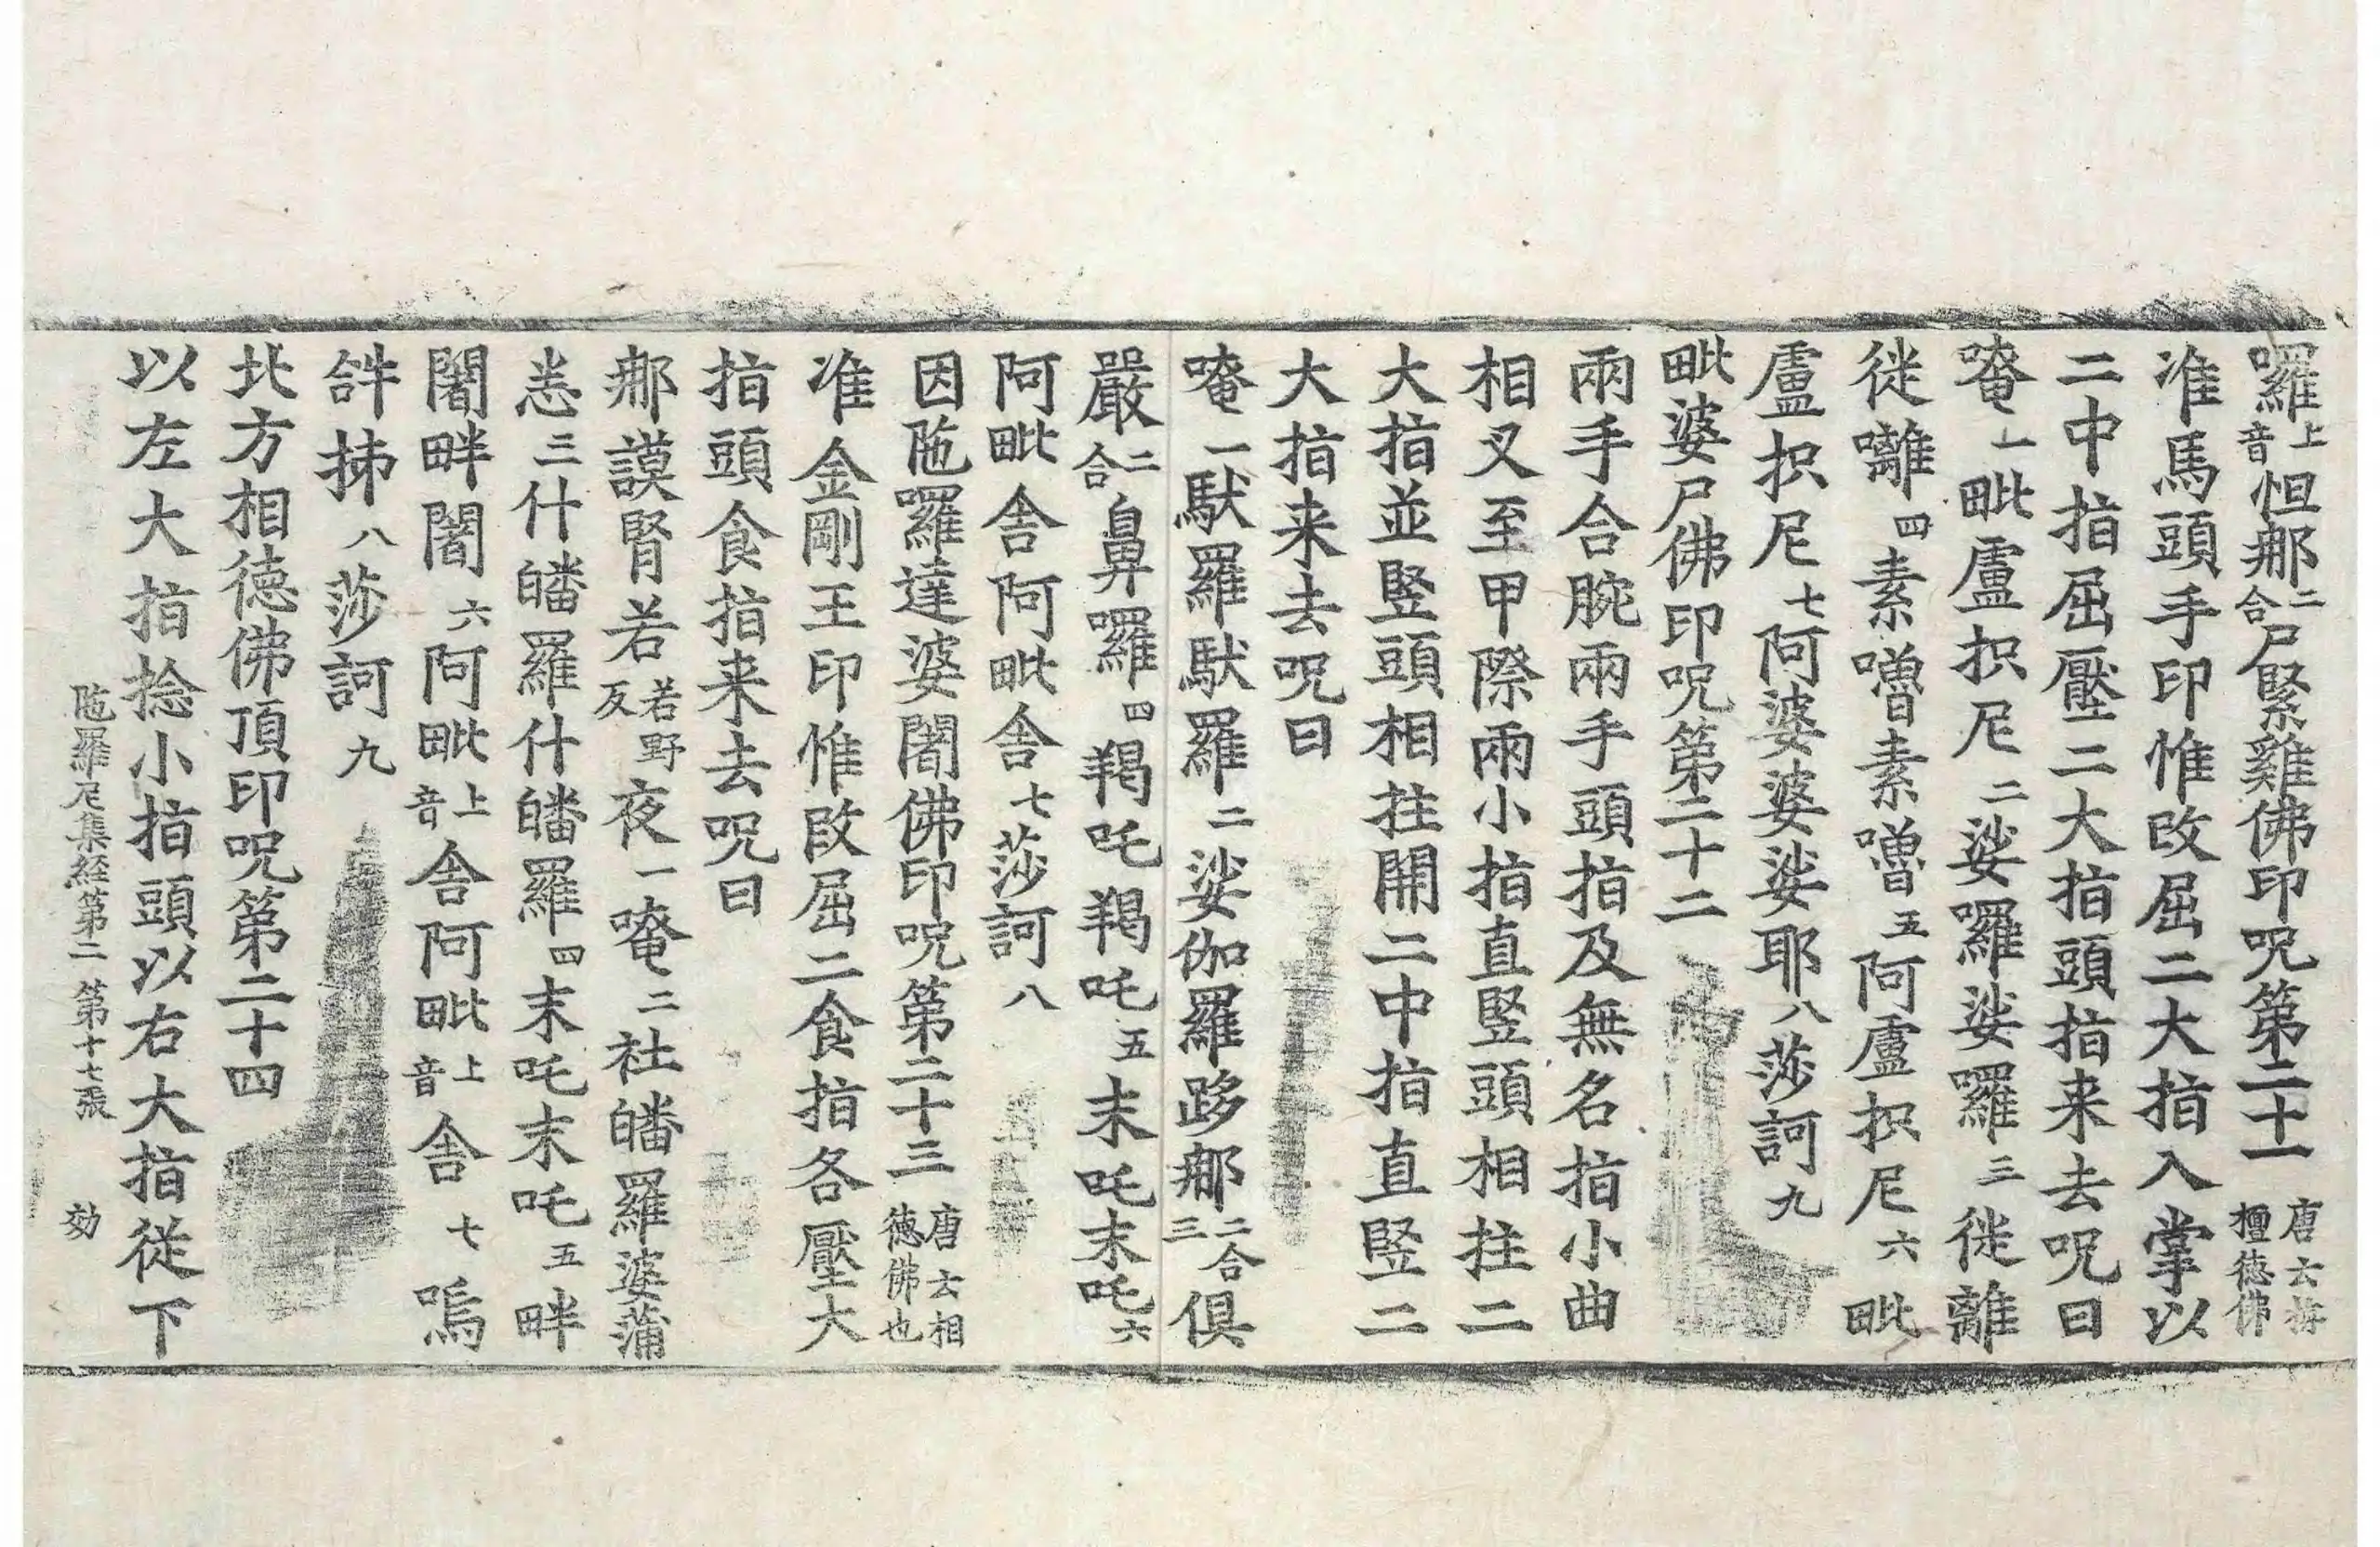 囉上音怛那二合尸緊雞佛印呪第二十一唐云拵檀德佛
准馬頭手印惟改屈二大指入掌以
二中指屈壓二大指頭指来去呪曰
唵一毗盧抧尼二娑囉娑囉三徙離
徙囄四素嚕素嚕五阿盧抧尼六毗
盧抧尼七阿婆婆娑耶八莎訶九
毗婆尸佛印呪第二十二
兩手合腕兩手頭指及無名指小曲
相叉至甲際兩小指直竪頭相拄二
大指並竪頭相拄開二中指直竪二
大指来去呪曰
唵一馱羅馱羅二娑伽羅跢那二合三俱
嚴二合鼻囉四羯吒羯吒五末吒末吒六
阿毗舍阿毗舍七莎訶八
因陁囉達婆闍佛印呪第二十三唐云相德佛也
准金剛王印惟改屈二食指各壓大
指頭食指来去呪曰
那謨腎若若野反夜一唵二社皤羅婆蒲
恙三什皤羅什皤羅四末吒末吒五畔
闍畔闍六阿毗上音舍阿毗上音舍七嗚
𤙖抪八莎訶九
北方相德佛頂印呪第二十四
以左大指捻小指頭以右大指從下
陁羅尼集經第二 第十七張 効